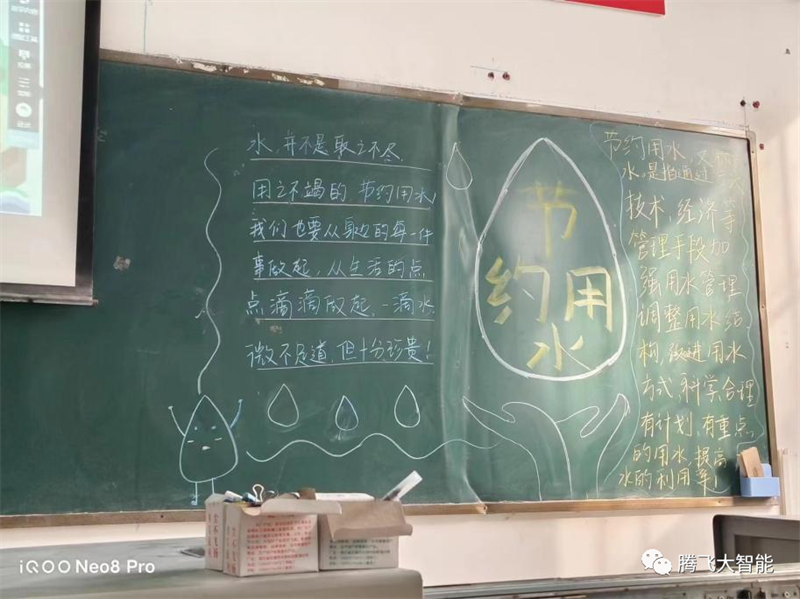 水,并不是取之不尽
用之不竭的 节约用水
我们也要从身边的每一件
事做起,从生活的点
点滴滴做起,一滴水
微不足道,但十分珍贵!
节
约用
水
节约用水,又
水,是指通过
技术,经济等
管理手段加
强用水管理
调整用水结
构,改进用水
方式,科学合理
有计划,有重点
的用水,提高
水的利用率!
iQOO Neo8 Pro
腾飞大智能